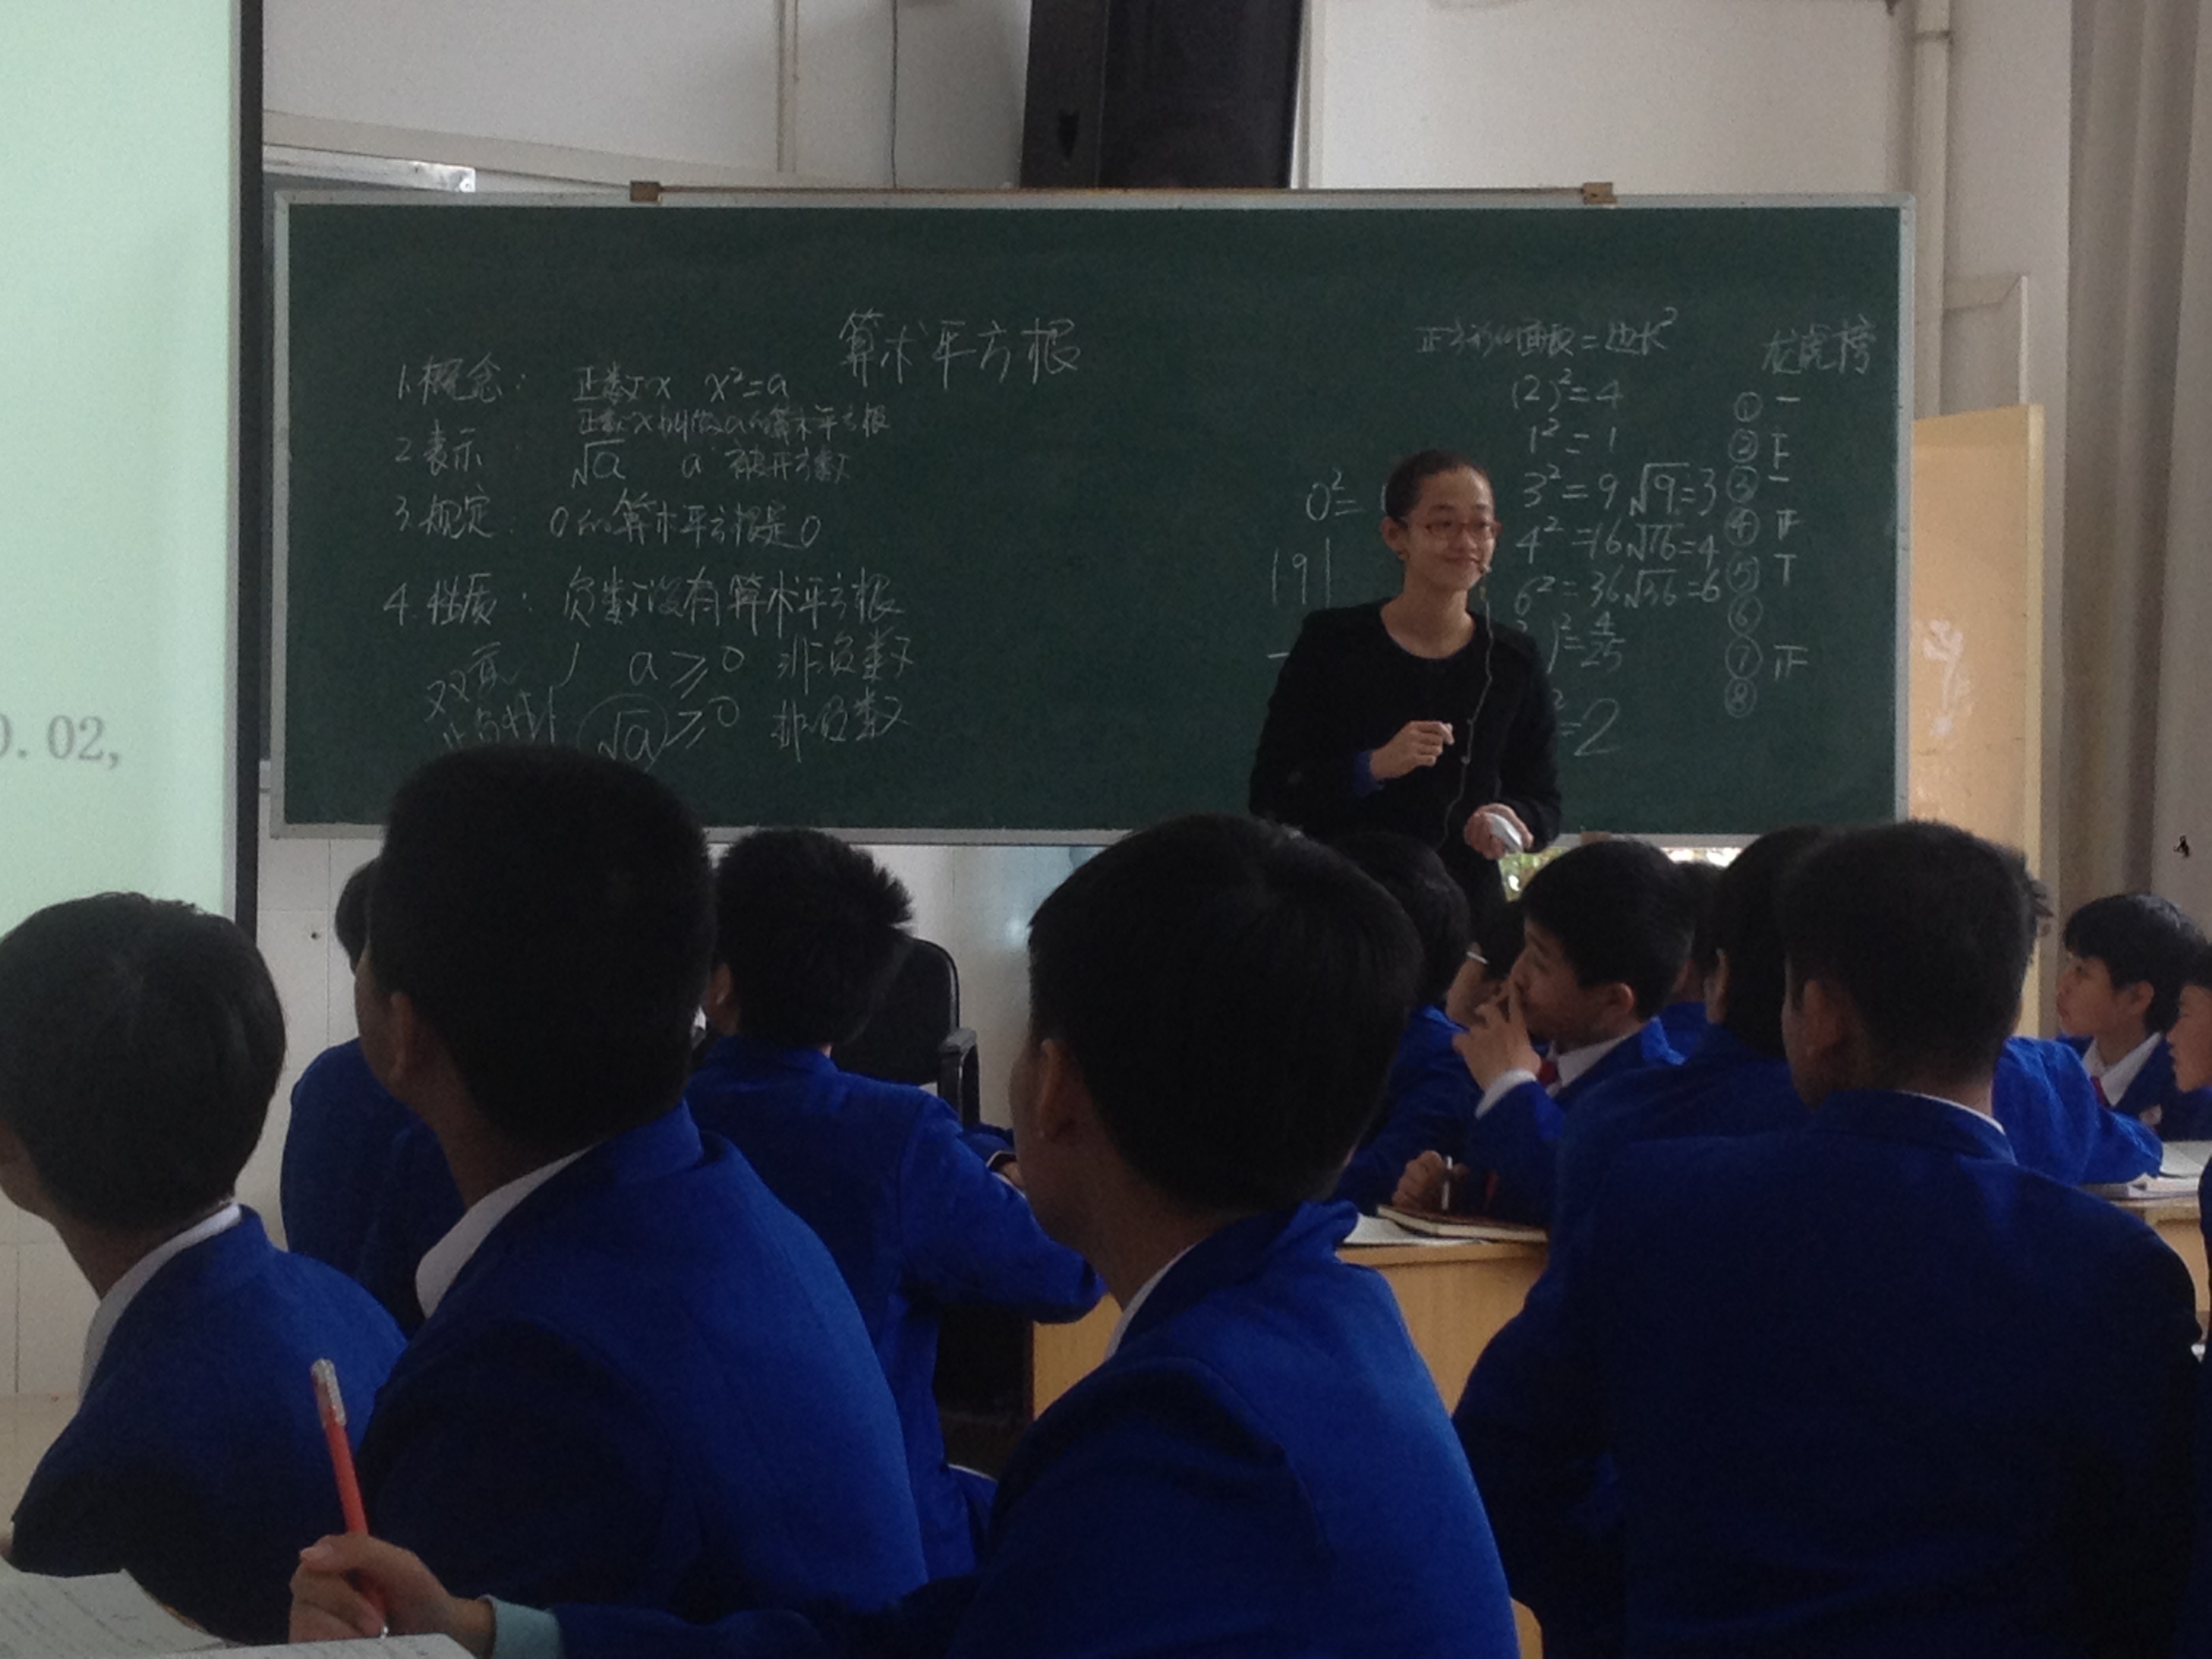 0.02,
算术平方根
1.概念: 正数x x²=a
正数x叫做a的算术平方根
2表示 √a a 被开方数
3.规定: 0的算术平方根是0
4.性质: 负数没有算术平方根
双重 a≥0 非负数
非负性 √a≥0 非负数
正方形的面积=边长²
(2)²=4
1²=1
0²=
3²=9 √9=3
4²=16 √16=4
|9|
6²=36 √36=6
)²=4/25
²=2
龙虎榜
① 一
②
③ 一
④ 正
⑤ T
⑥
⑦ 正
⑧